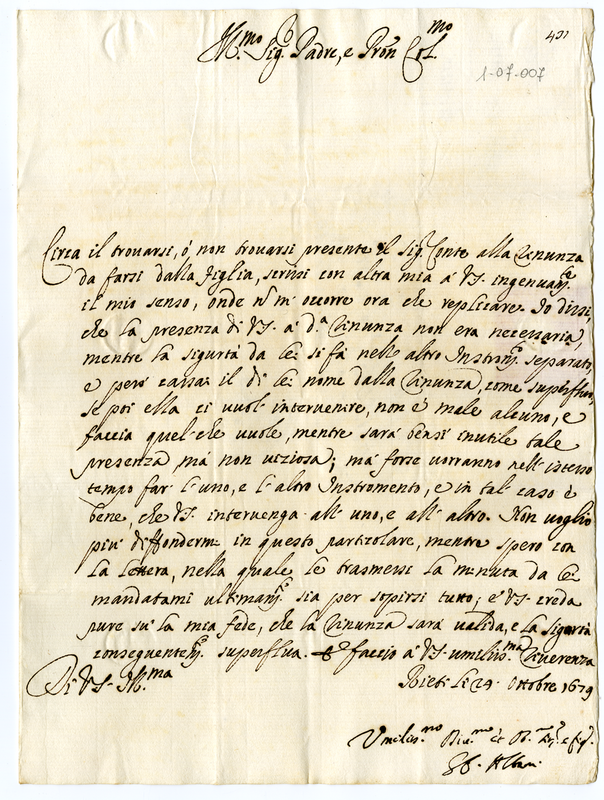 401
Ill.mo Sig.r Padre, e Pron Col.mo
1-07-007
Circa il trovarsi, ó non trovarsi presente il Sig.r Conte alla Renunza
da farsi dalla figlia, scrissi con altra mia á VS. ingenuam.te
il mio senso, onde nō m'occorre ora che replicare. Io dissi,
che la presenza di VS. á d.a Renunza non era necessaria,
mentre la sigurtá da lei si fá nell'altro Instrom.to separato,
e peró cassai il di lei nome dalla Renunza, come superfluo,
se poi ella ci vuol'intervenire, non é male alcuno, e
faccia quel che vuole, mentre sará bensí inutile tale
presenza, má non viziosa; má forse vorranno nell'istesso
tempo far l'uno, e l'altro Instromento, e in tal caso é
bene, che VS. intervenga all'uno, e all'altro. Non voglio
piú diffondermi in questo particolare, mentre spero con
la lettera, nella quale le trasmessi la minuta da lei
mandatami ultimam.te sia per sopirsi tutto; e VS. creda
pure sú la mia fede, che la Renunza sará valida, e la sigurtá
conseguentem.te superflua. E faccio á VS. umiliss.ma Riverenza
Di VS. Ill.ma
Rieti li 24 Ottobre 1679
Umiliss.mo Div.mo et Ob.
Gb. Alban